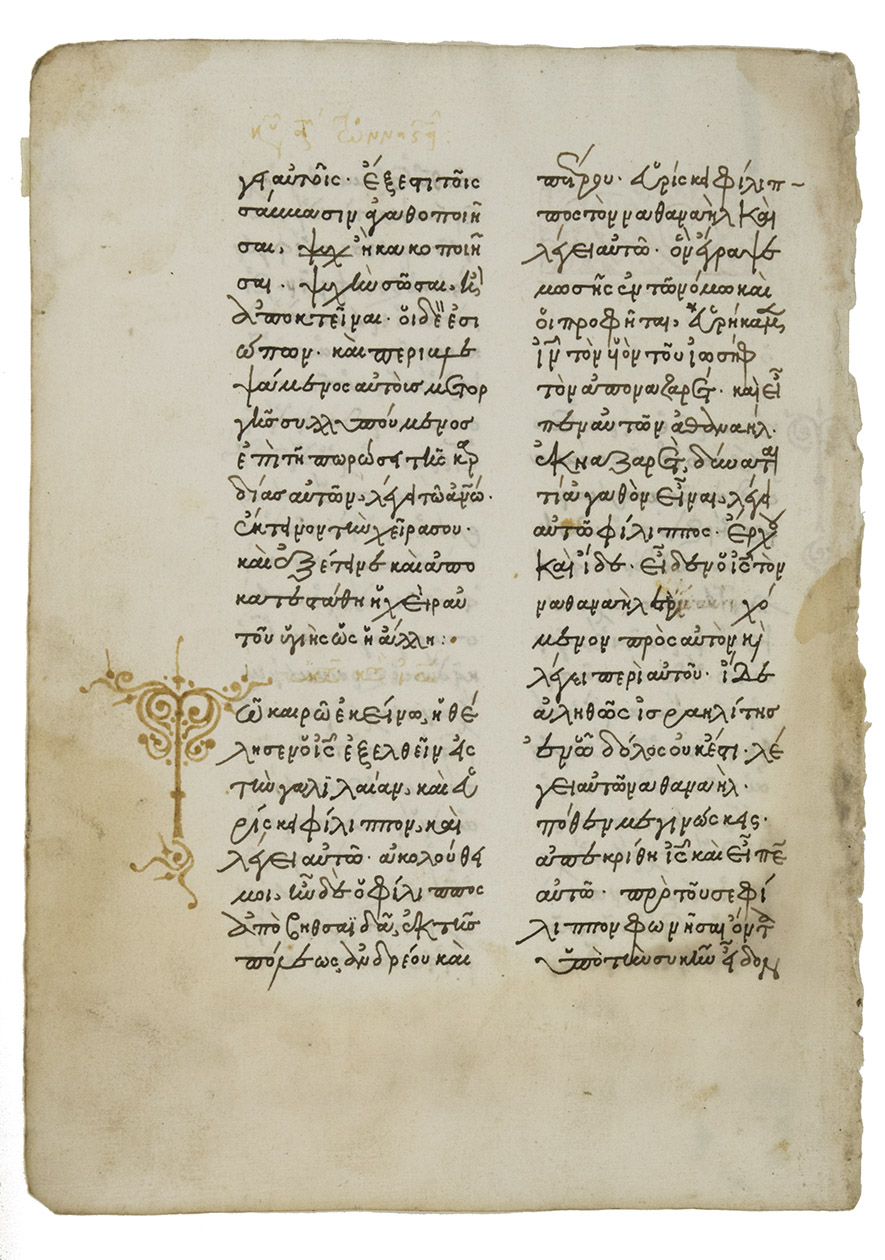 γει αὐτοῖς· ἔξεστι τοῖς
σάμμασιν ἀγαθοποιῆ
σαι, ψυχ ἢ κακοποιῆ
σαι· ψυχὴν σῶσαι, ἢ
ἀποκτεῖναι· οἱ δὲ ἐσι
ώπων· καὶ περιβλε
ψάμενος αὐτοὺς μετ ὀρ
γῆς συλλυπούμενος
ἐπὶ τῆ πωρώσει τῆς καρ
δίας αὐτῶν, λέγει τῶ ἀνῶ·
ἔκτεινον τὴν χεῖρα σου·
καὶ ἐξέτεινε καὶ ἀπο
κατεστάθη ἡ χεὶρ αὐ
τοῦ ὑγιὴς ὡς ἡ ἄλλη:
Τῶ καιρῶ ἐκείνω, ἠθέ
λησεν ὁ ις ἐξελθεῖν εἰς
τὴν γαλιλαίαν, καὶ εὑ
ρίσκει φίλιππον, καὶ
λέγει αὐτῶ· ἀκολούθει
μοι, ἦν δὲ ὁ φίλιππος
ἀπὸ βηθσαϊδὰ, ἐκ τῆς
πόλεως ἀνδρέου καὶ
πέτρου· εὑρίσκει φίλιπ
πος τὸν ναθαναὴλ καὶ
λέγει αὐτῶ· ὃν ἔγραψε
μωσῆς ἐν τῶ νόμω καὶ
οἱ προφῆται, εὑρήκαμεν
ιν τὸν υἱὸν τοῦ ἰωσὴφ
τὸν ἀπὸ ναζαρέτ· καὶ εἶ
πεν αὐτῶ ναθαναήλ·
ἐκ ναζαρὲτ, δύναται
τί ἀγαθὸν εἶναι, λέγει
αὐτῶ φίλιππος· ἔρχου
καὶ ἴδε· εἶδεν ὁ ις τὸν
ναθαναὴλ ἐρ χό
μενον πρὸς αὐτὸν καὶ
λέγει περὶ αὐτοῦ· ἴδε
ἀληθῶς ἰσραηλίτης
ἐν ῶ δόλος οὐκ ἔστι· λέ
γει αὐτῶ ναθαναήλ·
πόθεν με γινώσκεις·
ἀπεκρίθη ις καὶ εἶπεν
αὐτῶ· πρὸ τοῦ σε φί
λιππον φωνῆσαι ὄντα
ὑπὸ τὴν συκῆν εἶδον